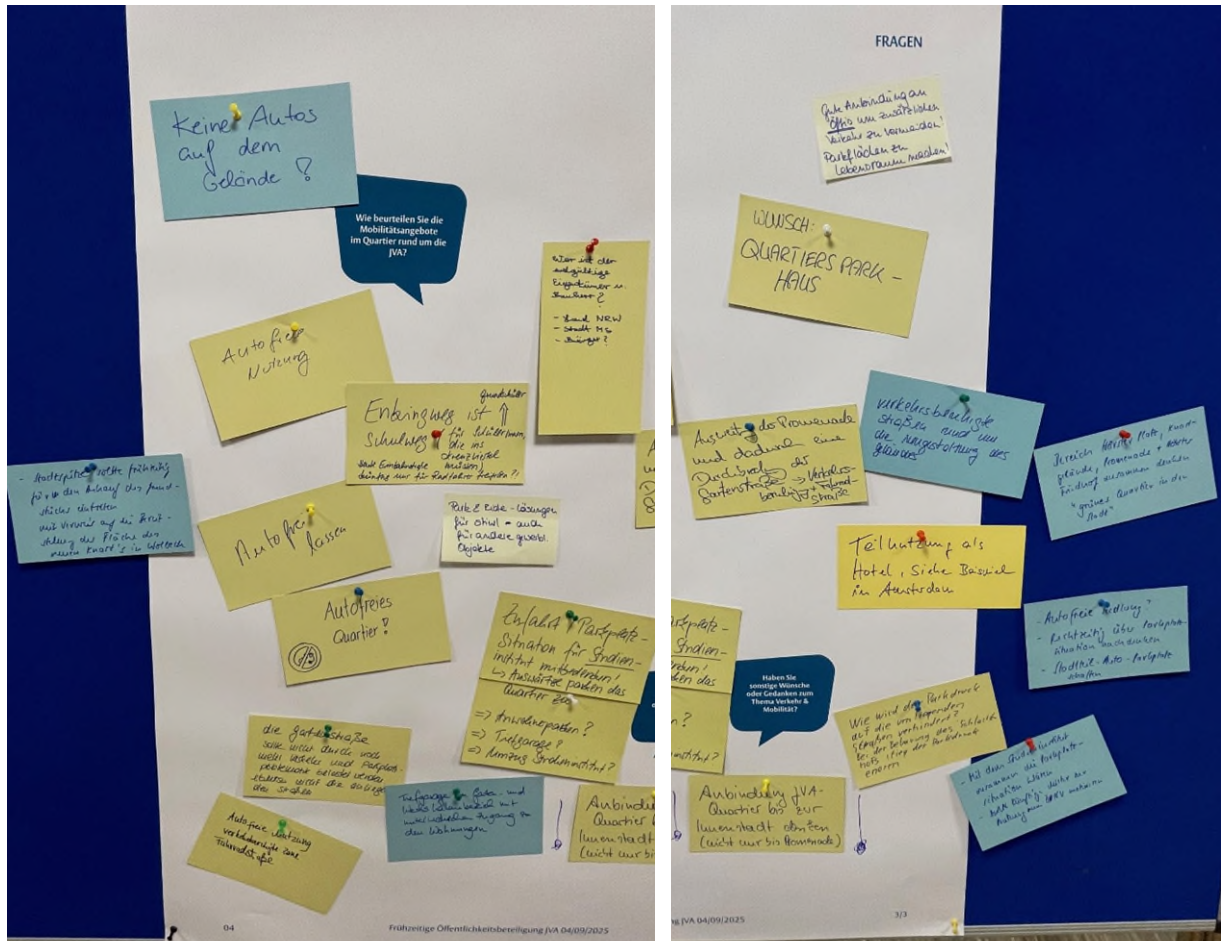 Keine Autos
auf dem
Gelände!
Wie beurteilen Sie die
Mobilitätsangebote
im Quartier rund um die
JVA?
Wer ist der
endgültige
Eigentümer u.
Bauherr?
- Land NRW
- Stadt MS
- Bürger?
Autofreie
Nutzung
Grundschüler
Enkingweg ist
Schulweg für SchülerInnen,
die ins
Kreuzviertel
müssen!
nur für Radfahrer
sollte frühzeitig
für den
Autofrei
lassen
Park & Ride-Lösungen
für - auch
für andere gewerbl.
Objekte
Autofreies
Quartier!
Zufahrt Parkplatz-
Situation für Studien-
institut mitbedenken!
↳ Auswärtige parken das
Quartier zu
=> Anwohnerparken?
=> Tiefgarage?
=> Umzug Studieninstitut?
die Gartenstraße
sollte nicht durch noch
mehr Verkehr und Parkplatz-
belastet werden
Tiefgarage
Zugang zu
den Wohnungen
Autofreie Nutzung
verkehrsberuhigte Zone
Fahrradstraße
Anbindu
Quartier b
Innenstadt
(nicht nur bis
04
Frühzeitige Öffentlichkeitsbeteiligung JVA 04/09/2025
FRAGEN
Gute Anbindung an
Öffis um zusätzlichen
Verkehr zu vermeiden!
Parkflächen zu
Lebensraum machen!
WUNSCH:
QUARTIERSPARK-
HAUS
Ausweitung der Promenade
und dadurch eine
Durchbruch der
Gartenstraße → Verkehrs-
beruhigt + Fahrrad-
straße
verkehrsberuhigte
Straßen rund um
die Neugestaltung des
Geländes
Bereich Platz, Knast-
gelände, Promenade +
Friedhof zusammen denken
"grünes Quartier in der
Stadt"
Teilnutzung als
Hotel, Siehe Beispiel
in Amsterdam
- Autofreie Siedlung?
- Rechtzeitig über Parkplatz-
situation nachdenken
- Stadtteil-Auto-Parkplätze
schaffen
Haben Sie
sonstige Wünsche
oder Gedanken zum
Thema Verkehr &
Mobilität?
Wie wird der Parkdruck
auf die umliegenden
Straßen verhindert?
Bei der Bebauung des Schlacht-
hofs stieg der Parkdruck
enorm
- Mit dem Studieninstitut
die Parkplatz-
situation klären
Anbindung JVA-
Quartier bis zur
Innenstadt denken
(nicht nur bis Promenade)
ng JVA 04/09/2025
3/3